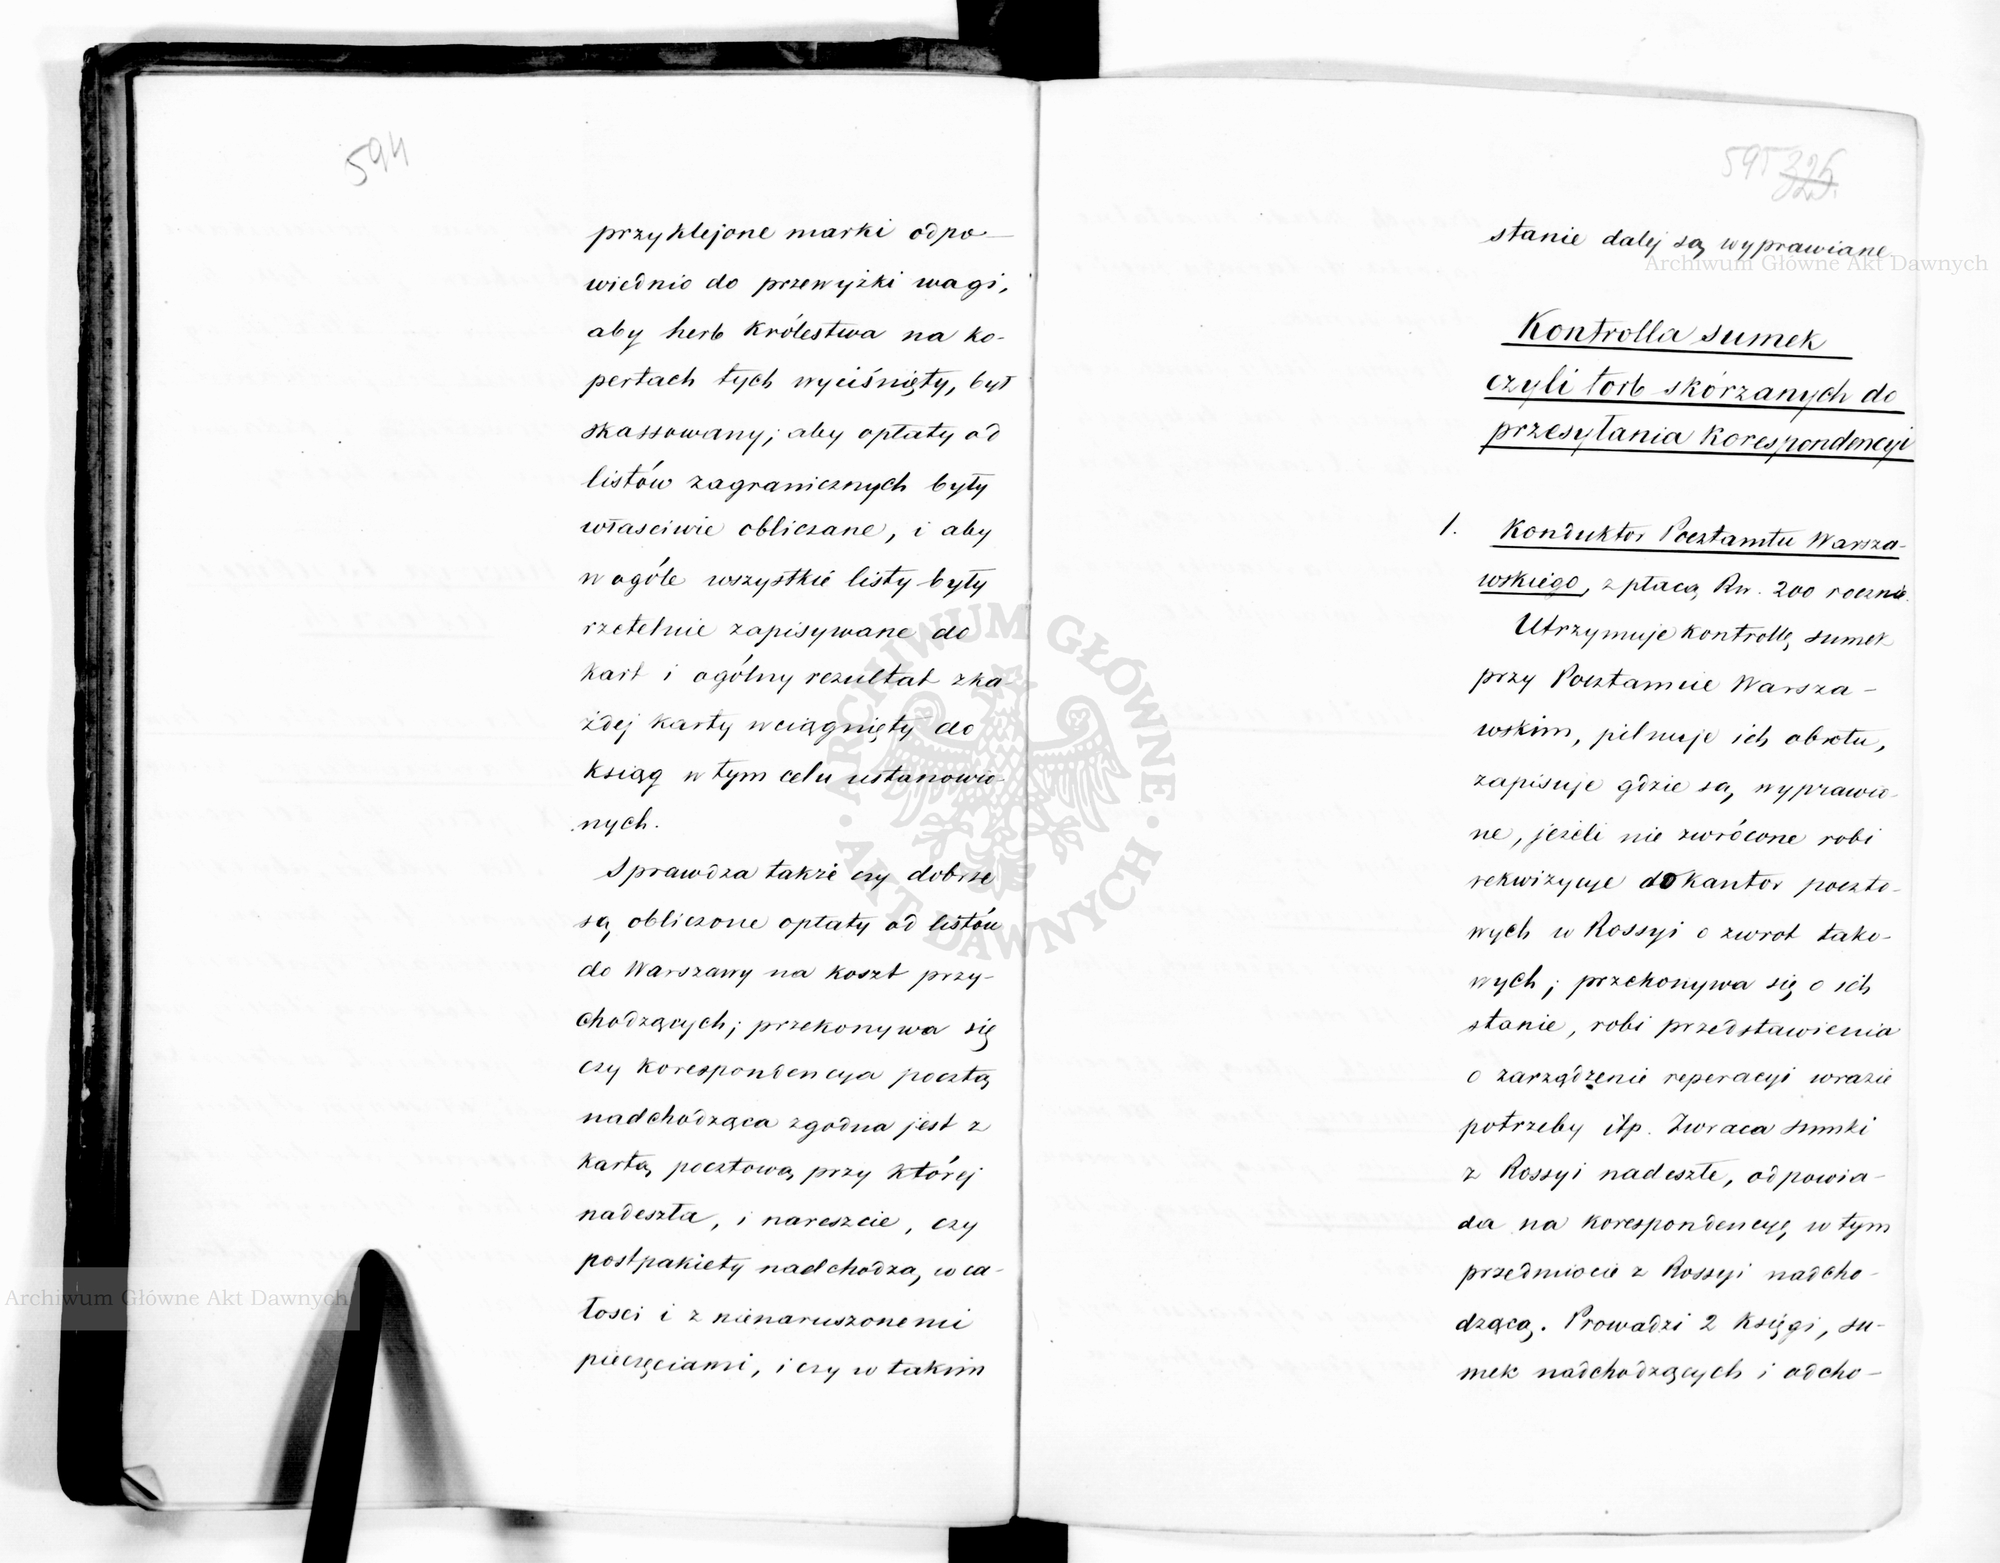 594
przyklejone marki odpo-
wiednio do przewyżki wagi,
aby herb Królestwa na ko-
pertach tych wyciśnięty, był
skassowany; aby opłaty od
listów zagranicznych były
właściwie obliczane, i aby
w ogóle wszystkie listy były
rzetelnie zapisywane do
kart i ogólny rezultat zka-
żdej karty wciągnięty do
ksiąg w tym celu ustanowio-
nych.
Sprawdza także czy dobrze
są obliczone opłaty od listów
do Warszawy na koszt przy-
chodzących; przekonywa się
czy korespondencya pocztą
nadchodząca zgodna jest z
kartą pocztową przy której
nadeszła, i nareszcie, czy
postpakiety nadchodzą w ca-
łości i z nienaruszonemi
pieczęciami, i czy w takim
595 325.
stanie dalej są wyprawiane
Kontrolla sumek
czyli torb skórzanych do
przesyłania korespondencyi
1. Konduktor Pocztamtu Warsza-
wskiego, z płacą Rsr. 200 rocznie.
Utrzymuje kontrollę sumek
przy Pocztamcie Warsza-
wskim, pilnuje ich obrotu,
zapisuje gdzie są wyprawio-
ne, jeżeli nie zwrócone robi
rekwizycye do Kantor poczto-
wych w Rossyi o zwrot tako-
wych; przekonywa się o ich
stanie, robi przedstawienia
o zarządzenie reperacyi wrazie
potrzeby itp. Zwraca sumki
z Rossyi nadeszłe, odpowia-
da na korespondencyę w tym
przedmiocie z Rossyi nadcho-
dzącą. Prowadzi 2 Księgi, su-
mek nadchodzących i odcho-
Archiwum Główne Akt Dawnych
Archiwum Główne Akt Dawnych
ARCHIWUM GŁÓWNE
AKT DAWNYCH